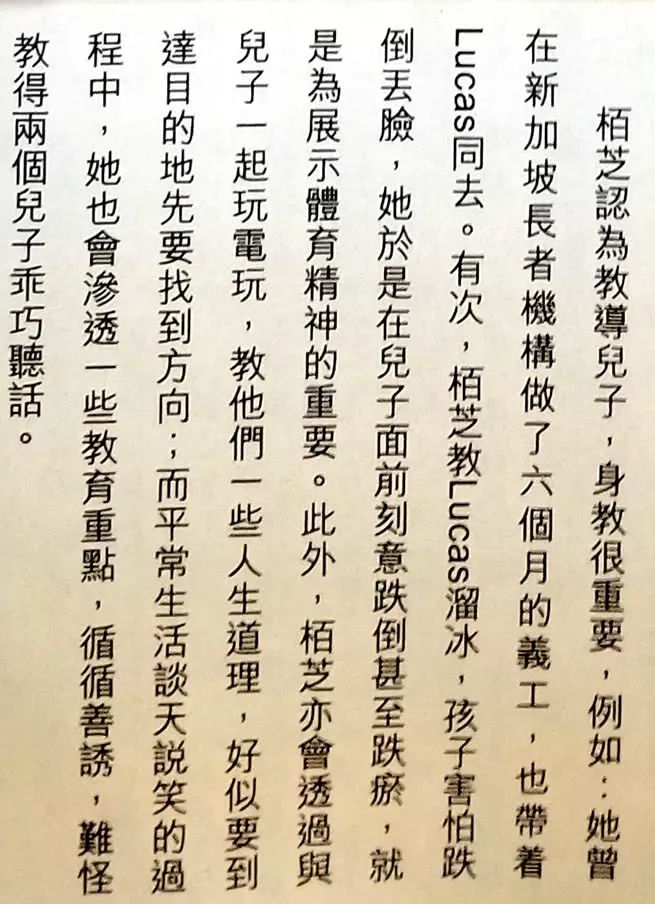 栢芝認為教導兒子，身教很重要，例如：她曾
在新加坡長者機構做了六個月的義工，也帶着
Lucas同去。有次，栢芝教Lucas溜冰，孩子害怕跌
倒丟臉，她於是在兒子面前刻意跌倒甚至跌瘀，就
是為展示體育精神的重要。此外，栢芝亦會透過與
兒子一起玩電玩，教他們一些人生道理，好似要到
達目的地先要找到方向；而平常生活談天説笑的過
程中，她也會滲透一些教育重點，循循善誘，難怪
教得兩個兒子乖巧聽話。